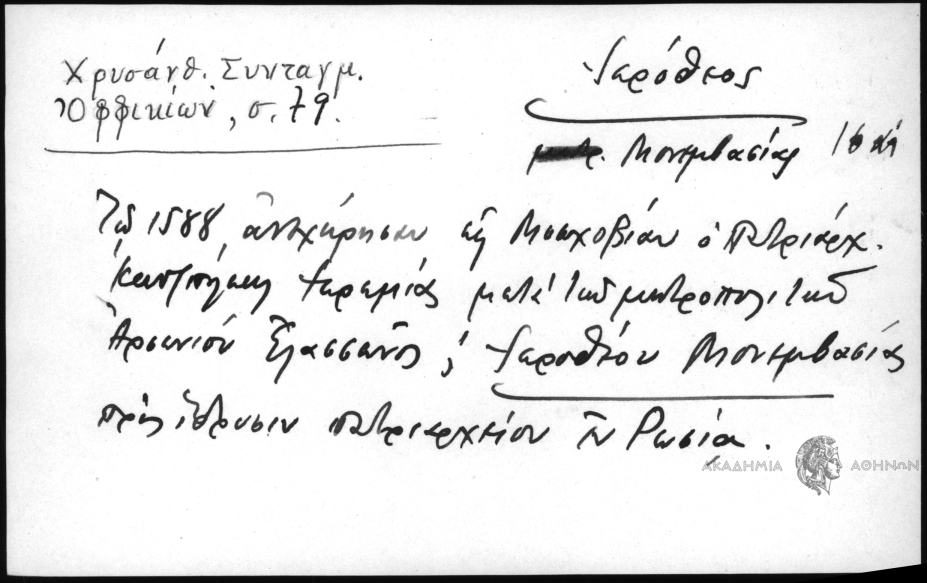 Χρυσάνθ. Συνταγμ.
Ὀφφικίων, σ. 79.
Ἱερόθεος
Μονεμβασίας 16 αἰ
Τῷ 1588 ἀνεχώρησεν εἰς Μοσχοβίαν ὁ Πατριάρχ.
Κωνζπόλεως Ἱερεμίας μετὰ τοῦ μητροπολίτου
Ἀρσενίου Ἐλασσῶνος & Ἱεροθέου Μονεμβασίας
πρὸς ἵδρυσιν πατριαρχείου ἐν Ρωσίᾳ.
ΑΚΑΔΗΜΙΑ ΑΘΗΝΩΝ